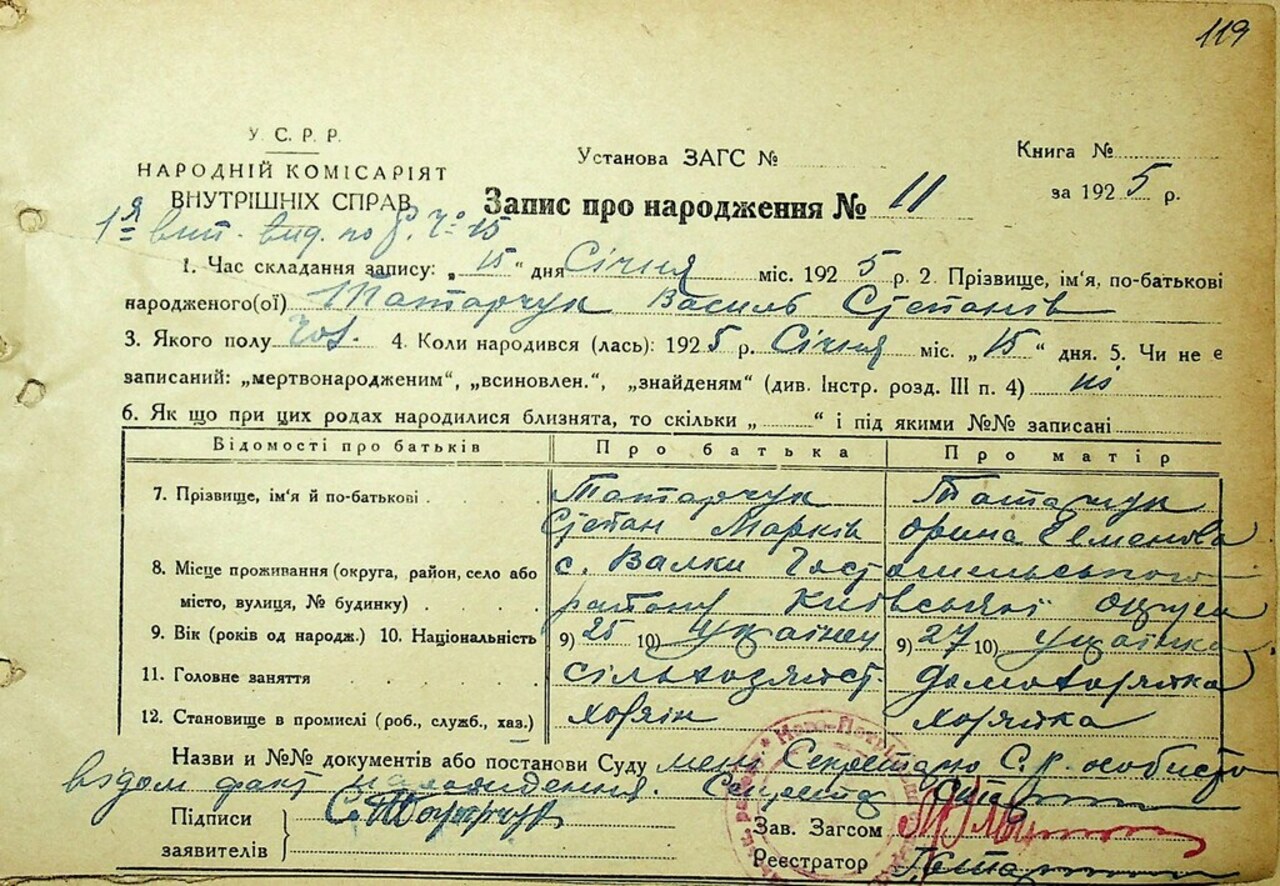 119
У. С. Р. Р.
НАРОДНІЙ КОМІСАРІЯТ
ВНУТРІШНІХ СПРАВ
Установа ЗАГС №
Книга №
за 1925 р.
Запис про народження № 11
1я вип. вид. по р. № 15
1. Час складання запису: „15“ дня Січня міс. 1925 р. 2. Прізвище, ім'я, по-батькові
народженого(ої) Татарчук Василь Степанів
3. Якого полу чол. 4. Коли народився (лась): 1925 р. Січня міс. „15“ дня. 5. Чи не є
записаний: „мертвонародженим“, „всиновлен.“, „знайденям“ (див. Інстр. розд. III п. 4) ні
6. Як що при цих родах народилися близнята, то скільки „ “ і під якими №№ записані
Відомості про батьків Про батька Про матір
7. Прізвище, ім'я й по-батькові Татарчук Татарчук
Степан Марків Орина
8. Місце проживання (округа, район, село або с. Валки Гостомельського
місто, вулиця, № будинку) району Київської округи
9. Вік (років од народж.) 10. Національність 9) 25 10) Українец 9) 27 10) Українка
11. Головне заняття домохозяйка
12. Становище в промислі (роб., служб., хаз.) хозяін хозяйка
Назви и №№ документів або постанови Суду мені Секретарю С. Р. особисто
відом факт народження. Секретар
Підписи
заявителів
С. Татарчук
Зав. Загсом
Реєстратор